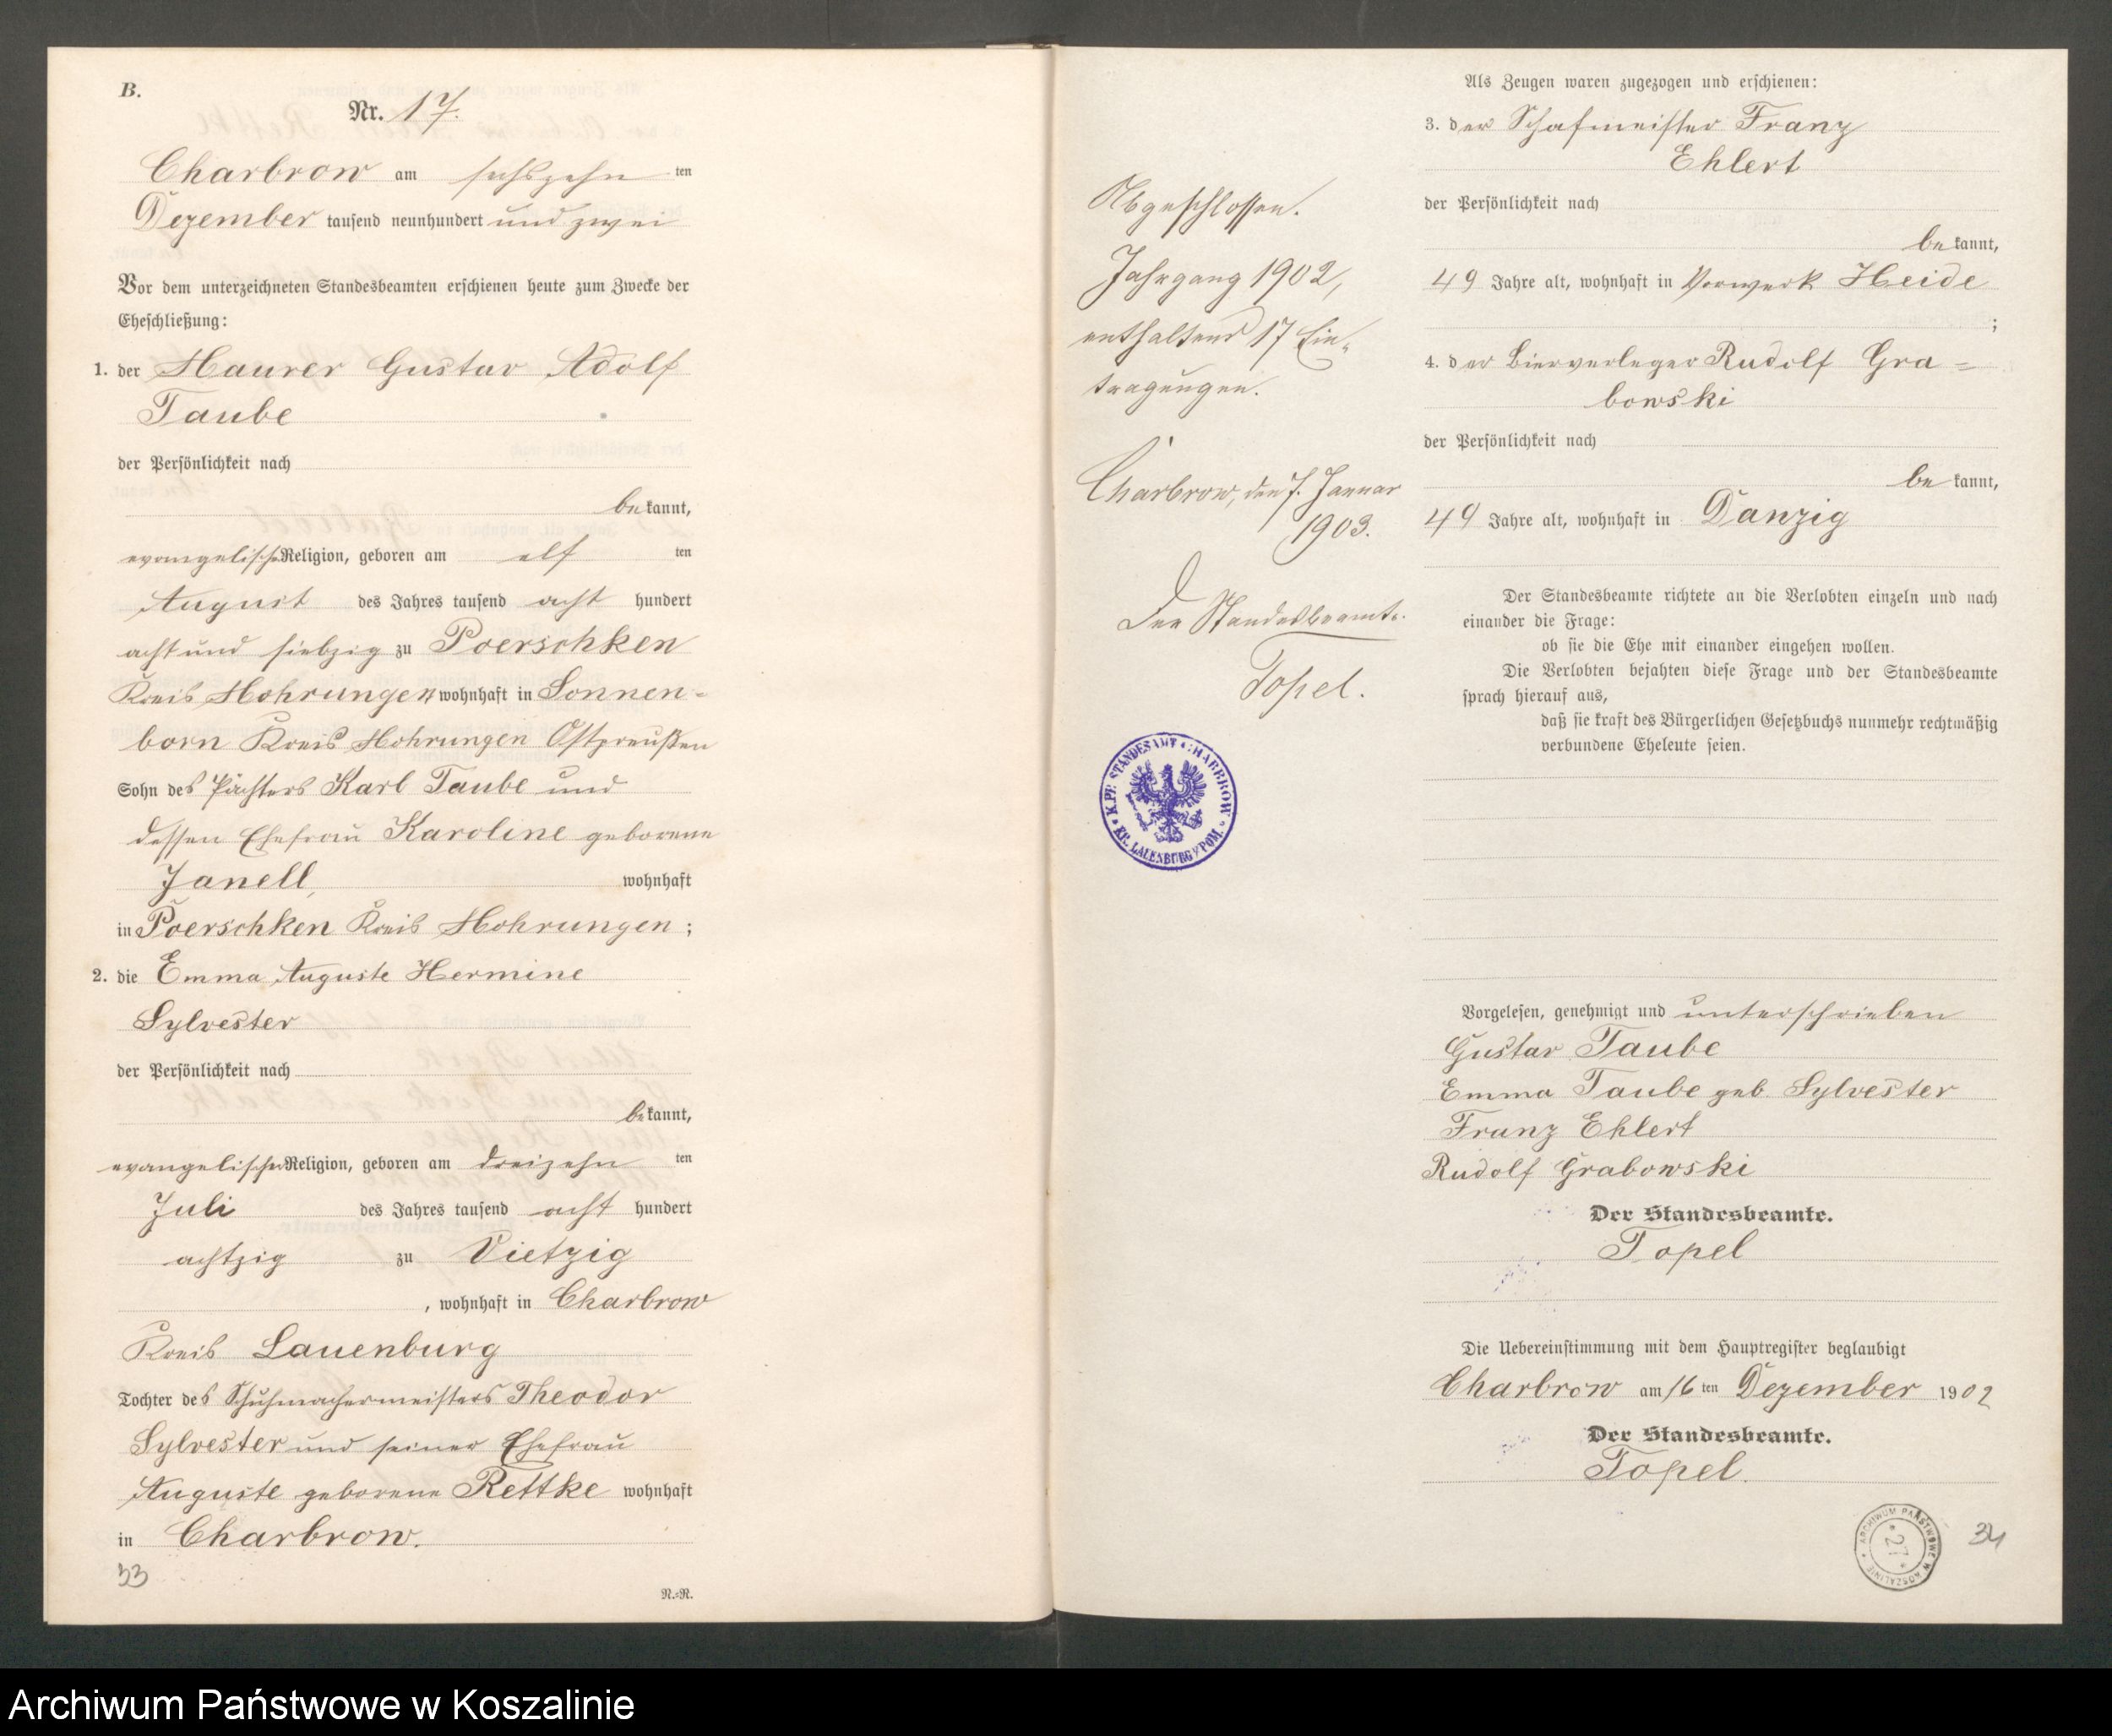 B.
Nr. 17.
Charbrow am sechszehn ten
Dezember tausend neunhundert und zwei
Vor dem unterzeichneten Standesbeamten erschienen heute zum Zwecke der
Eheschließung:
1. der Maurer Gustav Adolf
Taube
der Persönlichkeit nach
be kannt,
evangelischer Religion, geboren am elf ten
August des Jahres tausend acht hundert
acht und siebzig zu Poerschken
Kreis Mohrungen wohnhaft in Sonnen-
born Kreis Mohrungen Ostpreußen
Sohn des Pächters Karl Taube und
dessen Ehefrau Karoline geborene
Janell, wohnhaft
in Poerschken Kreis Mohrungen;
2. die Emma Auguste Hermine
Sylvester
der Persönlichkeit nach
be kannt,
evangelischer Religion, geboren am dreizehn ten
Juli des Jahres tausend acht hundert
achtzig zu Vietzig
, wohnhaft in Charbrow
Kreis Lauenburg
Tochter des Schuhmachermeisters Theodor
Sylvester und seiner Ehefrau
Auguste geborene Rettke wohnhaft
in Charbrow.
33
N.=R.
Abgeschlossen.
Jahrgang 1902,
enthaltend 17 Ein-
tragungen.
Charbrow, den 7. Januar
1903.
Der Standesbeamte.
Topel.
K. PR. STANDESAMT CHARBROW
KR. LAUENBURG I/ POM.
Als Zeugen waren zugezogen und erschienen:
3. der Schafmeister Franz
Ehlert
der Persönlichkeit nach
be kannt,
49 Jahre alt, wohnhaft in Vorwerk Heide
;
4. der Bierverleger Rudolf Gra=
bowski
der Persönlichkeit nach
be kannt,
49 Jahre alt, wohnhaft in Danzig
Der Standesbeamte richtete an die Verlobten einzeln und nach
einander die Frage:
ob sie die Ehe mit einander eingehen wollen.
Die Verlobten bejahten diese Frage und der Standesbeamte
sprach hierauf aus,
daß sie kraft des Bürgerlichen Gesetzbuchs nunmehr rechtmäßig
verbundene Eheleute seien.
Vorgelesen, genehmigt und unterschrieben
Gustav Taube
Emma Taube geb. Sylvester
Franz Ehlert
Rudolf Grabowski
Der Standesbeamte.
Topel
Die Uebereinstimmung mit dem Hauptregister beglaubigt
Charbrow am 16 ten Dezember 1902
Der Standesbeamte.
Topel.
ARCHIWUM PAŃSTWOWE W KOSZALINIE
* 27 *
34
Archiwum Państwowe w Koszalinie